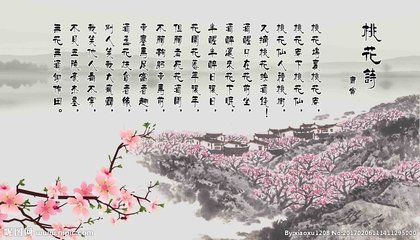 桃花詩
唐寅
桃花塢裏桃花庵,
桃花庵下桃花仙。
桃花仙人種桃樹,
又摘桃花換酒錢!
酒醒只在花前坐,
酒醉還來花下眠。
半醒半醉日復日,
花落花開年復年。
但願老死花酒間,
不願鞠躬車馬前。
車塵馬足富者趣,
酒盞花枝貧者緣。
別人笑我太瘋癲,
我笑他人看不穿。
不見五陵豪傑墓,
無花無酒鋤作田。
昵图网 www.nipic.com
By:xiaoxu1208 No:20170206111411295000